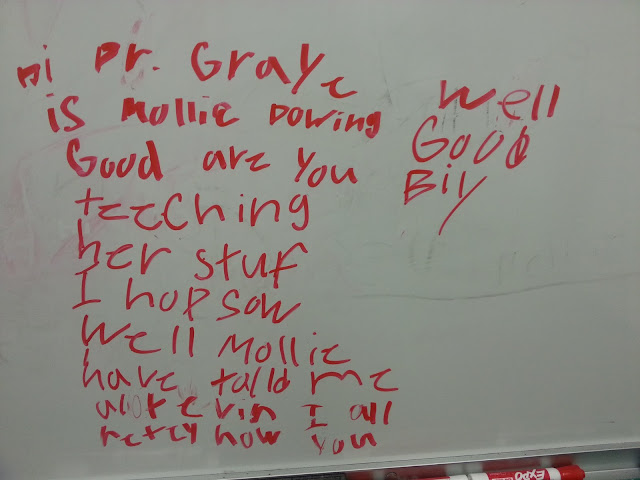 Hi Dr. Gray
is Mollie Dowing
Good are you
teeching
her stuf
I hop sow
Well Mollie
have talld me
I all
retey how you
Well
Good
Biy
EXPO